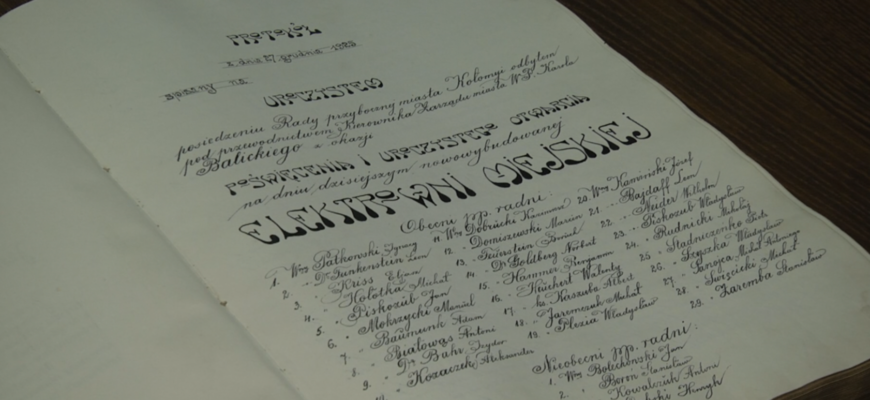 PROTOKÓŁ
z dnia 27. grudnia 1925
spisany na
UROCZYSTEM
posiedzeniu Rady przybocznej miasta Kołomyi odbytem
pod przewodnictwem Kierownika Zarządu miasta WP. Karola
Balickiego z okazji
POŚWIĘCENIA I UROCZYSTEGO OTWARCIA
na dniu dzisiejszym nowowybudowanej
ELEKTROWNI MIEJSKIEJ
Obecni pp. radni:
1. Wny Patkowski Ignacy
2. Dr. Funkenstein Leon
3. Kriss
4. Hołotka Michał
5. Piskozub Jan
6. Mokrzycki
7. Adam
8. Białowąs Antoni
9. Dr Bahr
Kozaczek Aleksander
11. Wny Dobrucki
12. Domiszewski Marian
13.
14. Dr Goldberg Norbert
15. Hammer
16. Küchert Walenty
17. ks. Kaszuba
18. Jaremczuk Michał
19. Plezia Władysław
20. Wny Kamiński Józef
21. Rajdaff Leon
22. Neider Wilhelm
23. Piskozub Władysław
24. Rudnicki Mikołaj
25. Stadniczenko
26. Szyszka Władysław
27. Sanojca
28. Święcicki Michał
29. Zaremba Stanisław
Nieobecni pp. radni:
1. Wny Bolechowski Jan
2. Boron
Kowalczuk Antoni